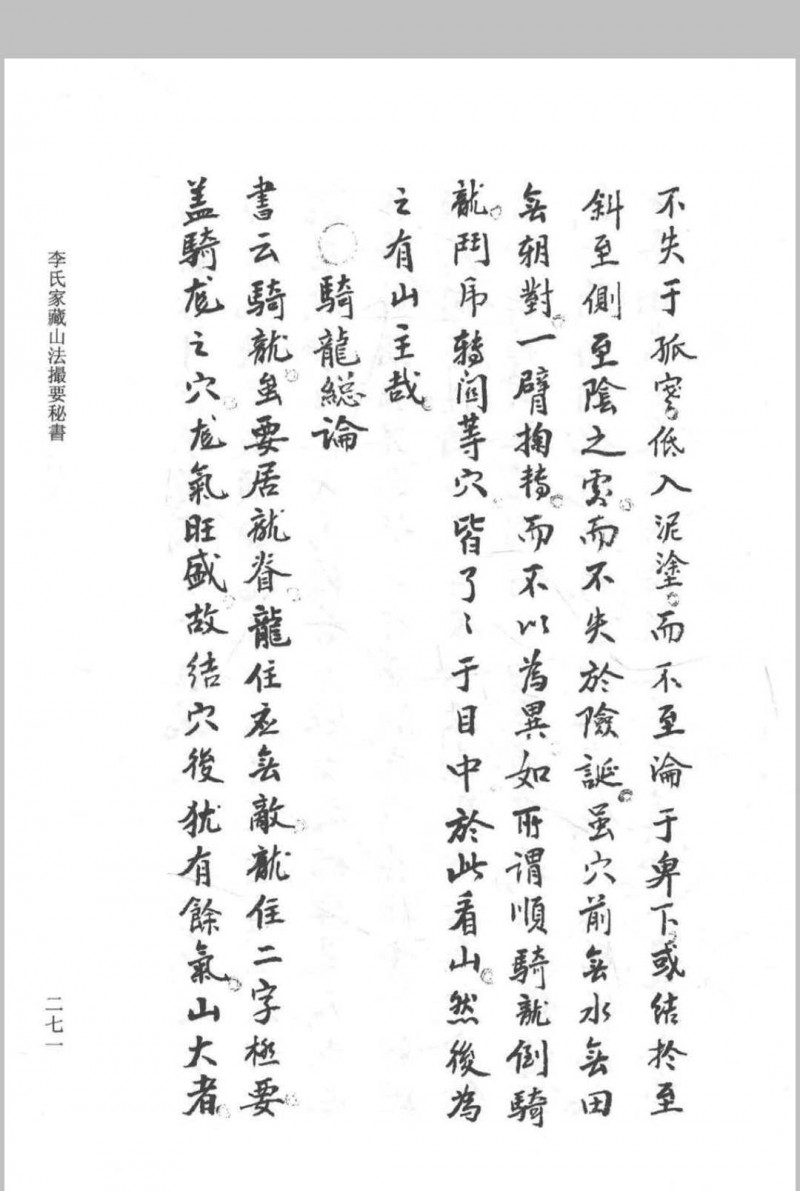 不失于孤寒低入泥塗而不至淪于卑下或結扵至
斜至側至陰之處而不失於險誕虽穴前無水無田
無朝對一臂掬轉而不以為異如所謂順騎龍倒騎
龍鬥虎轉関等穴皆了〻于目中於此看山然後為
之有山主哉
騎龍総論
書云騎龍虽要居龍脊龍住应無敵龍住二字極要
盖騎龙之穴龙氣旺盛故結穴後犹有餘氣山大者
李氏家藏山法撮要秘書
二七一